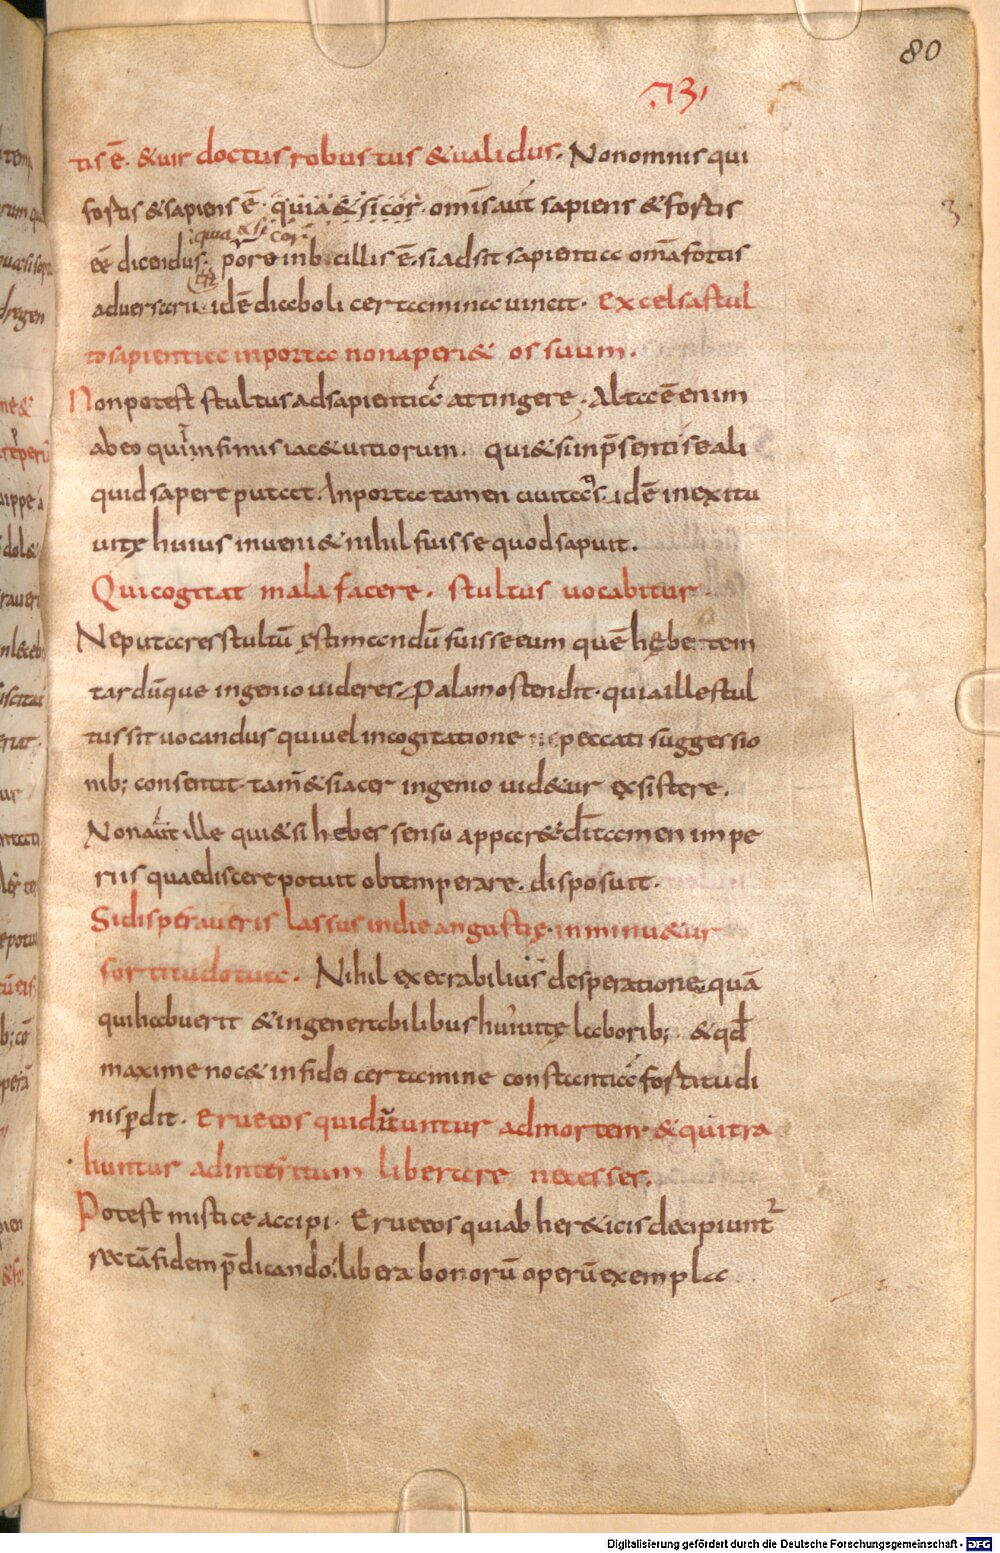 80
73
tis ē. & uir doctus robustus & ualidus. Non omnis qui
fortis & sapiens ē. quia & si cor. omīs aut sapiens & fortis
quia & si cor
eē dicendus. pore inbecillis ē. si adsit sapientia omīa fortis
aduersarii. idē diaboli certamina uincit. Excelsa stul
to sapientia in porta non aperi& os suum.
Non potest stultus ad sapientiā attingere. Alta ē enim
ab eo qui in infimis iac& uitiorum. qui & si in p̄senti se ali
quid sapere putat. In porta tamen ciuitatis. idē in exitu
uitę huius inueni& nihil fuisse quod sapuit.
Qui cogitat mala facere. stultus uocabitur.
Ne putares stultū ęstimandū fuisse eum quē hębetem
tardūque ingenio uideres. Palam ostendit. quia ille stul
tus sit uocandus qui uel in cogitatione peccati suggestio
nib; consentit. tam̄ & si acer ingenio uid&ur exsistere.
Non aut ille qui & si heber sensu appar& dī tamen impe
riis quae discere potuit obtemperare. disposuit.
Si disperaueris lassus in die angustię. inminu&ur
fortitudo tua. Nihil execrabilius desperatione quā
qui habuerit & in generabilibus hui' uitę laborib; & qd
maxime noc& in fidei certamine constantiā fortitudi
nis pdit. Erue eos qui ducuntur ad mortem & qui tra
huntur ad interitum liberare ne cesses.
Potest mistice accipi. Erue eos qui ab her&icis decipiunt
rectā fidem p̄dicando. libera bonorū operū exempla
Digitalisierung gefördert durch die Deutsche Forschungsgemeinschaft - DFG